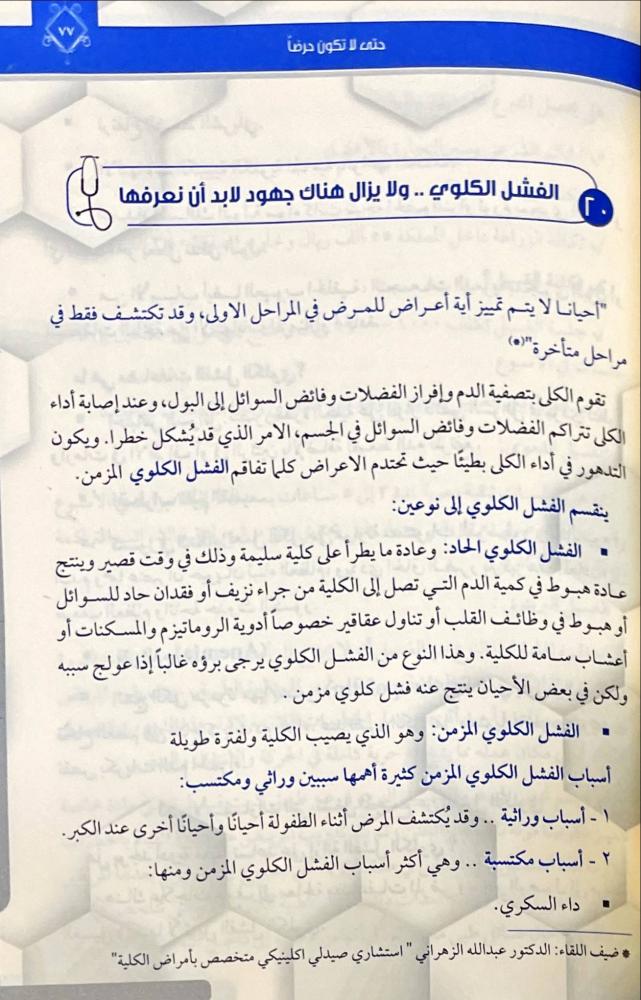 ٧٧
حتى لا تكون حرضاً
٢٠
الفشل الكلوي .. ولا يزال هناك جهود لابد أن نعرفها
"أحيانا لا يتم تمييز أية أعراض للمرض في المراحل الاولى، وقد تكتشف فقط في
مراحل متأخرة"(*)
تقوم الكلى بتصفية الدم وإفراز الفضلات وفائض السوائل إلى البول، وعند إصابة أداء
الكلى تتراكم الفضلات وفائض السوائل في الجسم، الامر الذي قد يُشكل خطرا. ويكون
التدهور في أداء الكلى بطيئًا حيث تحتدم الاعراض كلما تفاقم الفشل الكلوي المزمن.
ينقسم الفشل الكلوي إلى نوعين:
▪ الفشل الكلوي الحاد: وعادة ما يطرأ على كلية سليمة وذلك في وقت قصير وينتج
عادة هبوط في كمية الدم التي تصل إلى الكلية من جراء نزيف أو فقدان حاد للسوائل
أو هبوط في وظائف القلب أو تناول عقاقير خصوصاً أدوية الروماتيزم والمسكنات أو
أعشاب سامة للكلية. وهذا النوع من الفشل الكلوي يرجى برؤه غالباً إذا عولج سببه
ولكن في بعض الأحيان ينتج عنه فشل كلوي مزمن .
▪ الفشل الكلوي المزمن: وهو الذي يصيب الكلية ولفترة طويلة
أسباب الفشل الكلوي المزمن كثيرة أهمها سببين وراثي ومكتسب:
١ - أسباب وراثية .. وقد يُكتشف المرض أثناء الطفولة أحيانًا وأحيانًا أخرى عند الكبر.
٢ - أسباب مكتسبة .. وهي أكثر أسباب الفشل الكلوي المزمن ومنها:
▪ داء السكري.
* ضيف اللقاء: الدكتور عبدالله الزهراني " استشاري صيدلي اكلينيكي متخصص بأمراض الكلية"